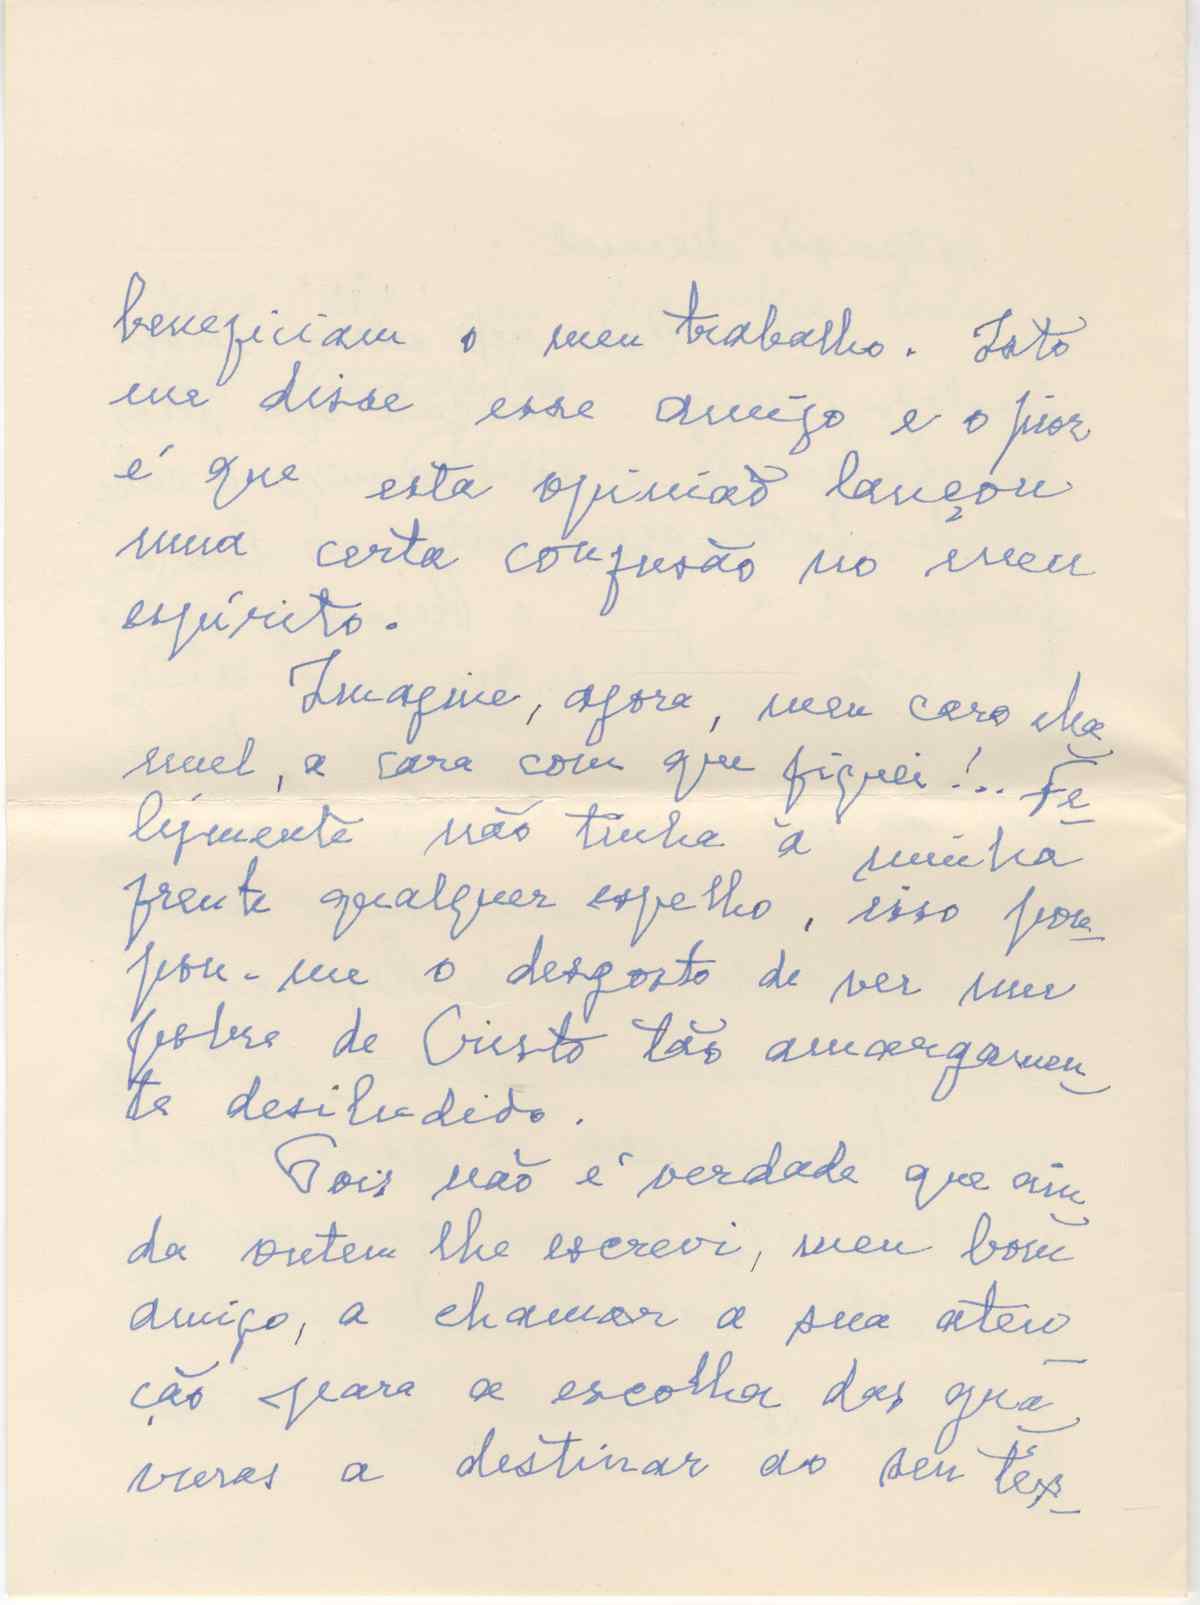 beneficiam o meu trabalho. Isto
me disse esse amigo e o pior
é que esta opinião lançou
uma certa confusão no meu
espírito.
Imagine, agora, meu caro Ma
nuel, a cara com que fiquei!.. Fe
lizmente não tinha à minha
frente qualquer espelho, isso pou
pou-me o desgosto de ver um
pobre de Cristo tão amargamen
te desiludido.
Pois não é verdade que ain
da ontem lhe escrevi, meu bom
amigo, a chamar a sua aten
ção para a escolha das gra
vuras a destinar ao seu têx